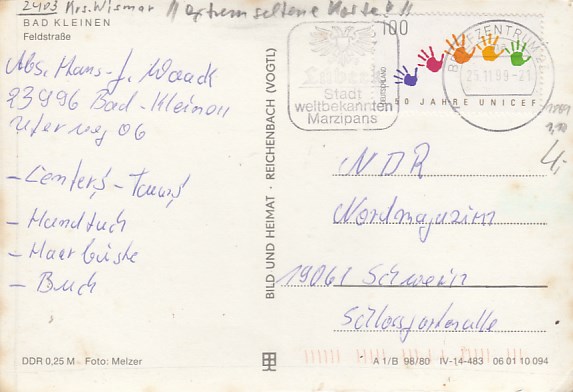 2403 Krs. Wismar !! extrem seltene Karte! !!
BAD KLEINEN
Feldstraße
Abs. Hans-J. Waack
23996 Bad-Kleinen
Uferweg 06
- Handtuch
- Haarbürste
- Buch
DDR 0,25 M Foto: Melzer
BILD UND HEIMAT · REICHENBACH (VOGTL)
Stadt
weltbekannten
Marzipans
100
DEUTSCHLAND
50 JAHRE UNICEF
BRIEFZENTRUM
4,-
NDR
Nordmagazin
19061 Schwerin
Schlossgartenallee
A 1/B 98/80 IV-14-483 06 01 10 094